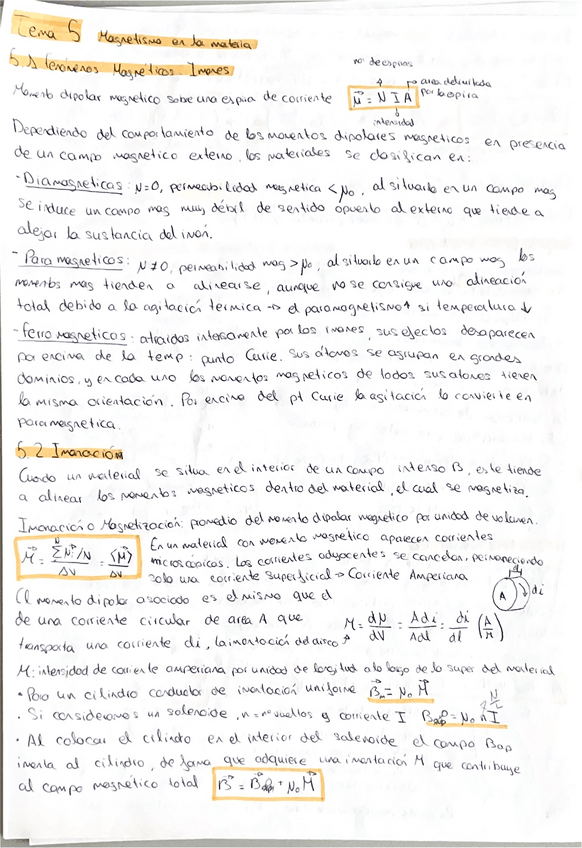 Tema 5 Magnetismo en la materia
5.1 Fenómenos Magnéticos. Imanes
nº de espiras
Momento dipolar magnético sobre una espira de corriente μ⃗ = N I A⃗ → area delimitada por la espira
intensidad
Dependiendo del comportamiento de los momentos dipolares magneticos en presencia
de un campo magnetico externo, los materiales se clasifican en:
- Diamagneticas: μ=0, permeabilidad magnetica < μ₀, al situarlo en un campo mag
se induce un campo mag muy débil de sentido opuesto al externo que tiende a
alejar la sustancia del imán.
- Paramagneticos: μ≠0, permeabilidad mag > μ₀, al situarlo en un campo mag los
momentos mag tienden a alinearse, aunque no se consigue una alineación
total debido a la agitación térmica → el paramagnetismo ↑ si temperatura ↓
- Ferromagneticos: atraidos intensamente por los imanes, sus efectos desaparecen
por encima de la temp: punto Curie. Sus átomos se agrupan en grandes
dominios, y en cada uno los momentos magneticos de todos sus atomos tienen
la misma orientación. Por encima del pt Curie la agitación lo convierte en
paramagnetica.
5.2 Imanación
Cuando un material se situa en el interior de un campo intenso B, este tiende
a alinear los momentos magneticos dentro del material, el cual se magnetiza.
Imanación o Magnetización: promedio del momento dipolar magnetico por unidad de volumen.
M⃗ = Σᴺ μ⃗ᵢ/N / ΔV = ⟨μ⃗⟩ / ΔV
En un material con momento magnetico aparecen corrientes
microscópicas. Las corrientes adyacentes se cancelan, permaneciendo
solo una corriente superficial → Corriente Amperiana
El momento dipolar asociado es el mismo que el
de una corriente circular de area A que
transporta una corriente di, la imantación del disco ↗ M = dμ/dV = A di/A dl = di/dl (A/m)
A di
M: intensidad de corriente amperiana por unidad de longitud a lo largo de la super del material
• Para un cilindro conductor de imantación uniforme B⃗ₘ = μ₀ M⃗
• Si consideramos un solenoide, n = nº vueltas y corriente I B⃗ap = μ₀ n I ↗ N/L
• Al colocar el cilindro en el interior del solenoide el campo Bap
imanta al cilindro, de forma que adquiere una imantación M que contribuye
al campo magnético total B⃗ = B⃗ap + μ₀ M⃗